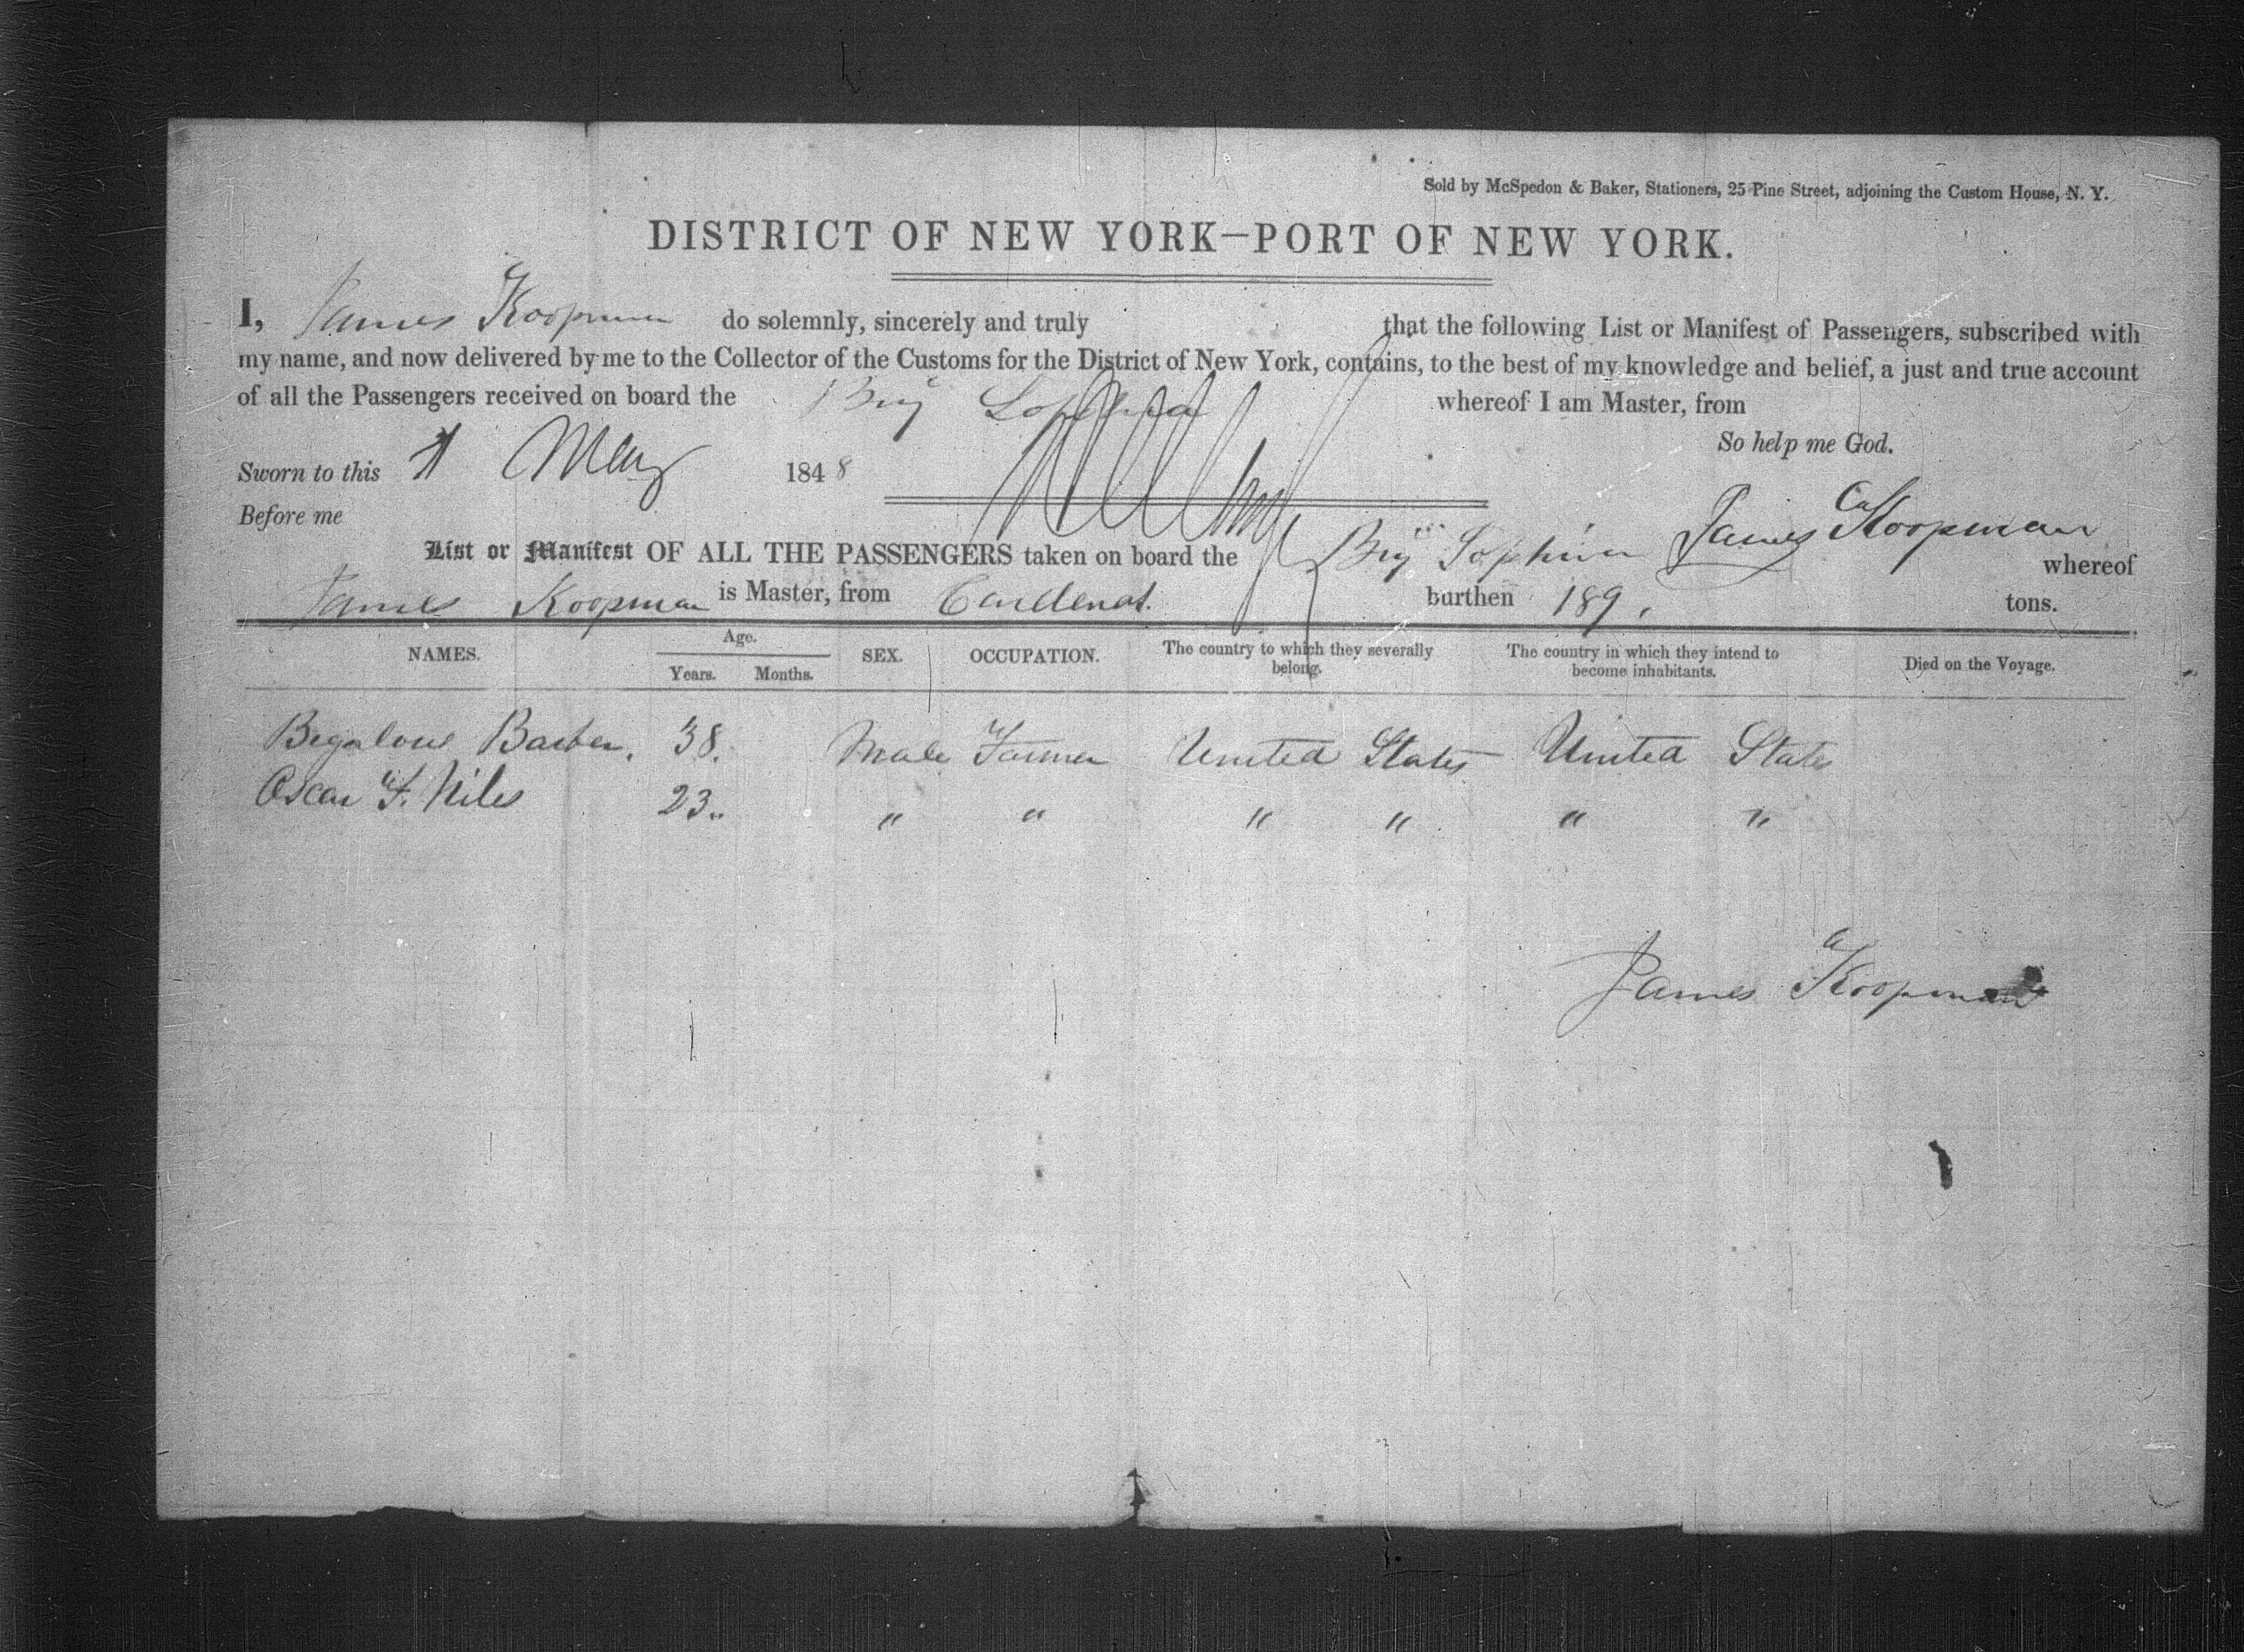 Sold by McSpedon & Baker, Stationers, 25 Pine Street, adjoining the Custom House, N. Y.
DISTRICT OF NEW YORK—PORT OF NEW YORK.
I, James Koopman do solemnly, sincerely and truly that the following List or Manifest of Passengers, subscribed with
my name, and now delivered by me to the Collector of the Customs for the District of New York, contains, to the best of my knowledge and belief, a just and true account
of all the Passengers received on board the Brig Sophia whereof I am Master, from
So help me God.
Sworn to this May 1848
Before me James Koopman
List or Manifest OF ALL THE PASSENGERS taken on board the Brig Sophia whereof
James Koopman is Master, from Cardenas. burthen 189, tons.
NAMES. Age. SEX. OCCUPATION. The country to which they severally belong. The country in which they intend to become inhabitants. Died on the Voyage.
Years. Months.
Bigalow Barber. 38. Male Farmer United States United States
Oscar F. Niles 23.. " " " " " "
James Koopman